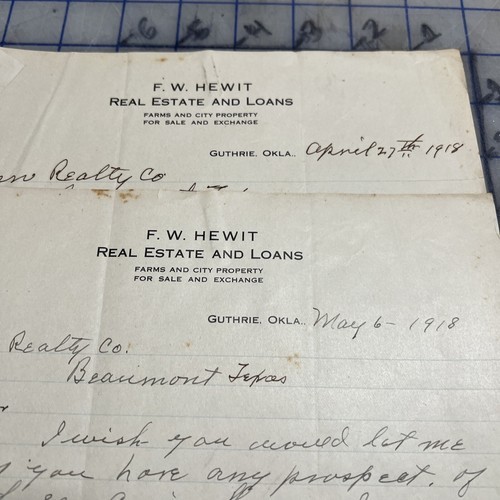 6 5 4 3 2 1
F. W. HEWIT
REAL ESTATE AND LOANS
FARMS AND CITY PROPERTY
FOR SALE AND EXCHANGE
GUTHRIE, OKLA., April 27th 1918
Realty Co
F. W. HEWIT
REAL ESTATE AND LOANS
FARMS AND CITY PROPERTY
FOR SALE AND EXCHANGE
GUTHRIE, OKLA., May 6- 1918
Realty Co.
Beaumont Texas
I wish you would let me
you have any prospect. of